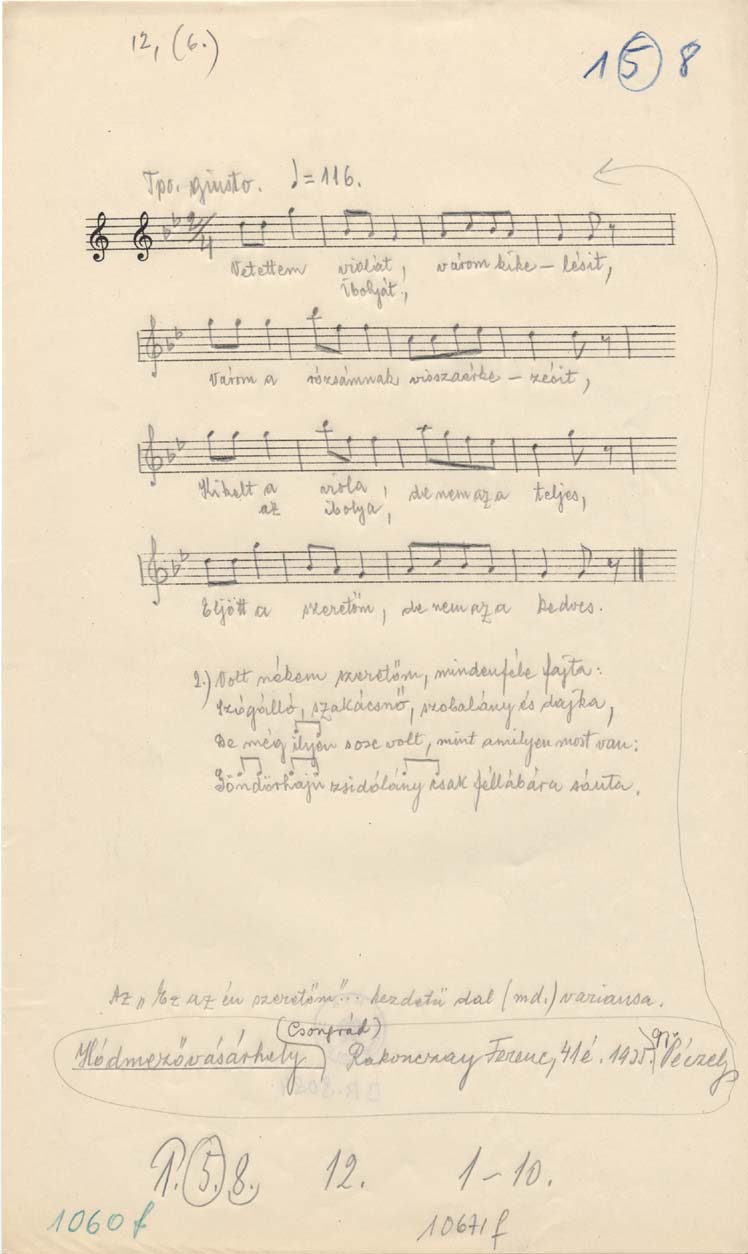 12, (6.)
1 5 8
Tpo. giusto. ♩=116.
2/4
Vetettem violát, várom kike – lésit,
Ibolyát,
Várom a rózsámnak visszaérke – zésit,
Kikelt a viola, de nem az a teljes,
az ibolya,
Eljött a szeretőm, de nem az a kedves.
2.) Volt nékem szeretőm, mindenféle fajta:
Szógálló, szakácsnő, szobalány és dajka,
De még ilyen sose volt, mint amilyen most van:
Göndörhajú zsidólány csak féllábára sánta.
Az „Ez az én szeretőm"... kezdetű dal (md.) variansa.
(Csongrád)
Hódmezővásárhely Rakonczay Ferenc, 41 é. 1935. gy. Péczely
1.5.8. 12. 1–10.
1060 f
10671 f